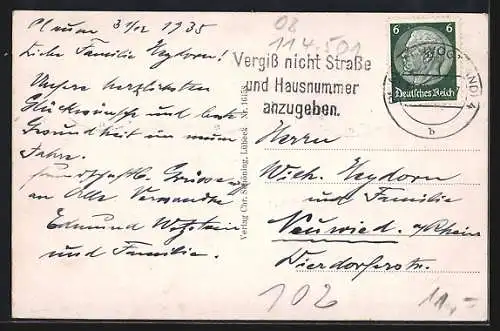 Plauen 31/12 1935
Liebe Familie Heydorn!
Unsere herzlichsten
Glückwünsche und beste
Gesundheit im neuen
Jahre.
Freundschaftl. Grüsse
an Alle Verwandte
Edmund
und Familie.
Verlag Chr. Schöning, Lübeck Nr. 1658
02
114.501
Vergiß nicht Straße
und Hausnummer
anzugeben.
6 6
Deutsches Reich
VOGTLAND 4
b
Herrn
Wilh. Heydorn
und Familie
Neuwied a/Rhein
Dierdorferstr.
102
11,-